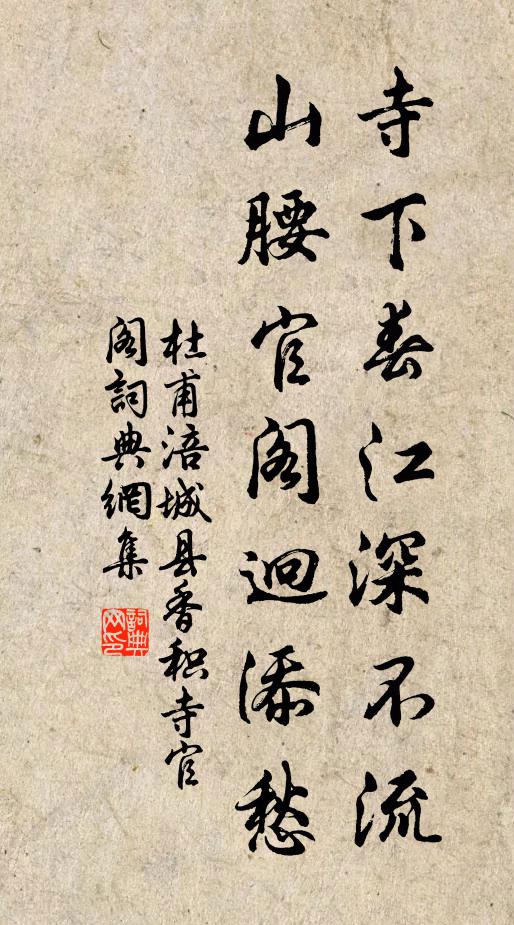 寺下春江深不流
山腰官阁迥添愁
杜甫涪城县香积寺官
阁詞典網集
詞典
网印